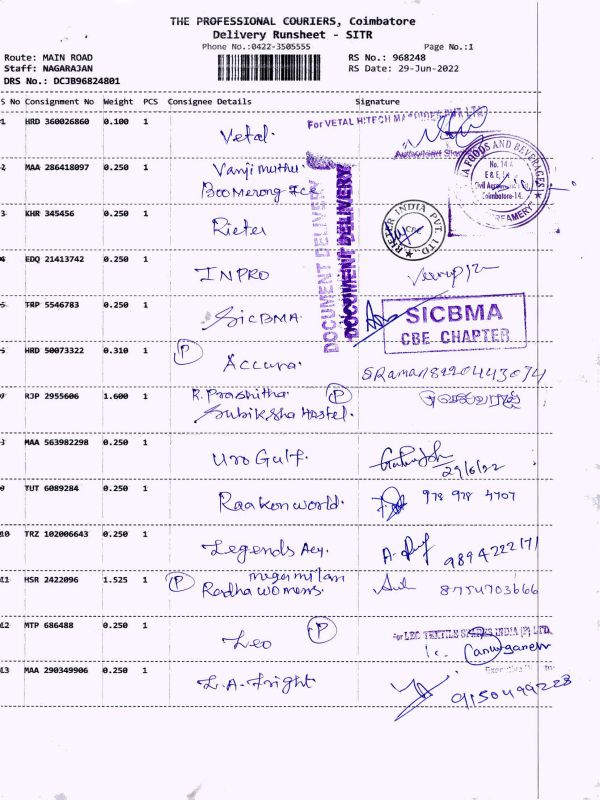 THE PROFESSIONAL COURIERS, Coimbatore
Delivery Runsheet - SITR
Phone No.:0422-3505555
Page No.:1
Route: MAIN ROAD
RS No.: 968248
Staff: NAGARAJAN
RS Date: 29-Jun-2022
DRS No.: DCJB96824801
S No Consignment No Weight PCS Consignee Details Signature
1 HRD 360026860 0.100 1 Vetal. For VETAL HITECH
2 MAA 286418097 0.250 1 Vanji muthu
Boomerong Ice
FOODS AND BEVERAGES
No. 14 A
Coimbatore-14.
CREAMERY
DOCUMENT DELIVERY
DOCUMENT DELIVERY
3 KHR 345456 0.250 1 Rieter
RIETER INDIA PVT. LTD.
CBE
4 EDQ 21413742 0.250 1 INPRO
5 TRP 5546783 0.250 1 SICBMA.
SICBMA
CBE CHAPTER
6 HRD 50073322 0.310 1 P Accura. SRaman 8220443074
7 RJP 2955606 1.600 1 R. Prashitha. P
Subiksha Hostel.
8 MAA 563982598 0.250 1 Uro Gulf.
29/6/22
9 TUT 6089284 0.250 1 Raakonworld. 978 978 4707
10 TRZ 102006643 0.250 1 Legends Aey. 9894222171
11 HSR 2422096 1.525 1 P Radha Womens. 8754703666
12 MTP 686488 0.250 1 Leo P
For LEC TEXTILE SPARES INDIA (P) LTD.
13 MAA 290349906 0.250 1 L.A. Fright 9150499228